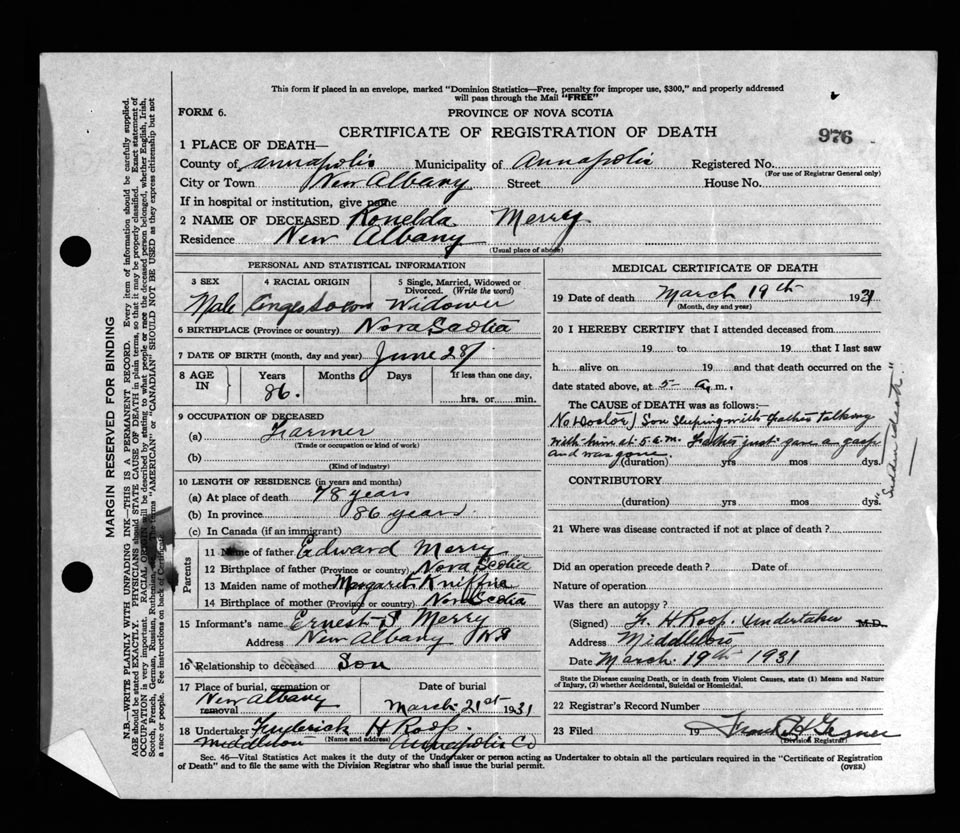 This form if placed in an envelope, marked "Dominion Statistics—Free, penalty for improper use, $300," and properly addressed
will pass through the Mail "FREE"
FORM 6.
PROVINCE OF NOVA SCOTIA
CERTIFICATE OF REGISTRATION OF DEATH
976
1 PLACE OF DEATH—
County of Annapolis Municipality of Annapolis Registered No.
(For use of Registrar General only)
City or Town New Albany Street House No.
If in hospital or institution, give name
2 NAME OF DECEASED Merry
Residence New Albany
(Usual place of abode)
PERSONAL AND STATISTICAL INFORMATION
3 SEX 4 RACIAL ORIGIN 5 Single, Married, Widowed or
Divorced. (Write the word)
Male Widower
6 BIRTHPLACE (Province or country) Nova Scotia
7 DATE OF BIRTH (month, day and year) June 28/
8 AGE IN Years Months Days If less than one day,
86. hrs. or min.
9 OCCUPATION OF DECEASED
(a) Farmer
(Trade of occupation or kind of work)
(b)
(Kind of industry)
10 LENGTH OF RESIDENCE (in years and months)
(a) At place of death 78 years
(b) In province 86 years
(c) In Canada (if an immigrant)
Parents
11 Name of father Edward Merry
12 Birthplace of father (Province or country) Nova Scotia
13 Maiden name of mother Margaret
14 Birthplace of mother (Province or country) Nova Scotia
15 Informant's name Ernest S Merry
Address New Albany NS
16 Relationship to deceased Son
17 Place of burial, cremation or Date of burial
New Albany
removal March 21st 1931
18 Undertaker Frederick H Roop
(Name and address)
Middleton Annapolis Co
MEDICAL CERTIFICATE OF DEATH
19 Date of death March 19th 1931
(Month, day and year)
20 I HEREBY CERTIFY that I attended deceased from
19 to 19 that I last saw
h alive on 19 and that death occurred on the
date stated above, at 5 a.m.
The CAUSE OF DEATH was as follows:
No Doctor / Son sleeping with father talking
with him at 5 a.m. Father just gave a gasp
and was gone.
(duration) yrs mos dys.
CONTRIBUTORY
(duration) yrs mos dys.
"Sudden death."
21 Where was disease contracted if not at place of death?
Did an operation precede death? Date of
Nature of operation
Was there an autopsy?
(Signed) F. H Roop. Undertaker M.D.
Address Middleton
Date March 19th 1931
State the Disease causing Death, or in death from Violent Causes, state (1) Means and Nature
of Injury, (2) whether Accidental, Suicidal or Homicidal.
22 Registrar's Record Number
23 Filed 19
(Division Registrar)
Sec. 46—Vital Statistics Act makes it the duty of the Undertaker or person acting as Undertaker to obtain all the particulars required in the "Certificate of Registration
of Death" and to file the same with the Division Registrar who shall issue the burial permit.
(OVER)
MARGIN RESERVED FOR BINDING
N.B.—WRITE PLAINLY WITH UNFADING INK—THIS IS A PERMANENT RECORD. Every item of information should be carefully supplied.
AGE should be stated EXACTLY. PHYSICIANS should STATE CAUSE OF DEATH in plain terms, so that it may be properly classified. Exact statement of
OCCUPATION is very important. RACIAL ORIGIN will be described by stating to what people or race the deceased person belonged, whether English, Irish,
Scotch, French, German, Russian, Ruthenian, The terms "AMERICAN" or "CANADIAN" SHOULD NOT BE USED as they express citizenship but not
a race or people. See instructions on back of Certificate.